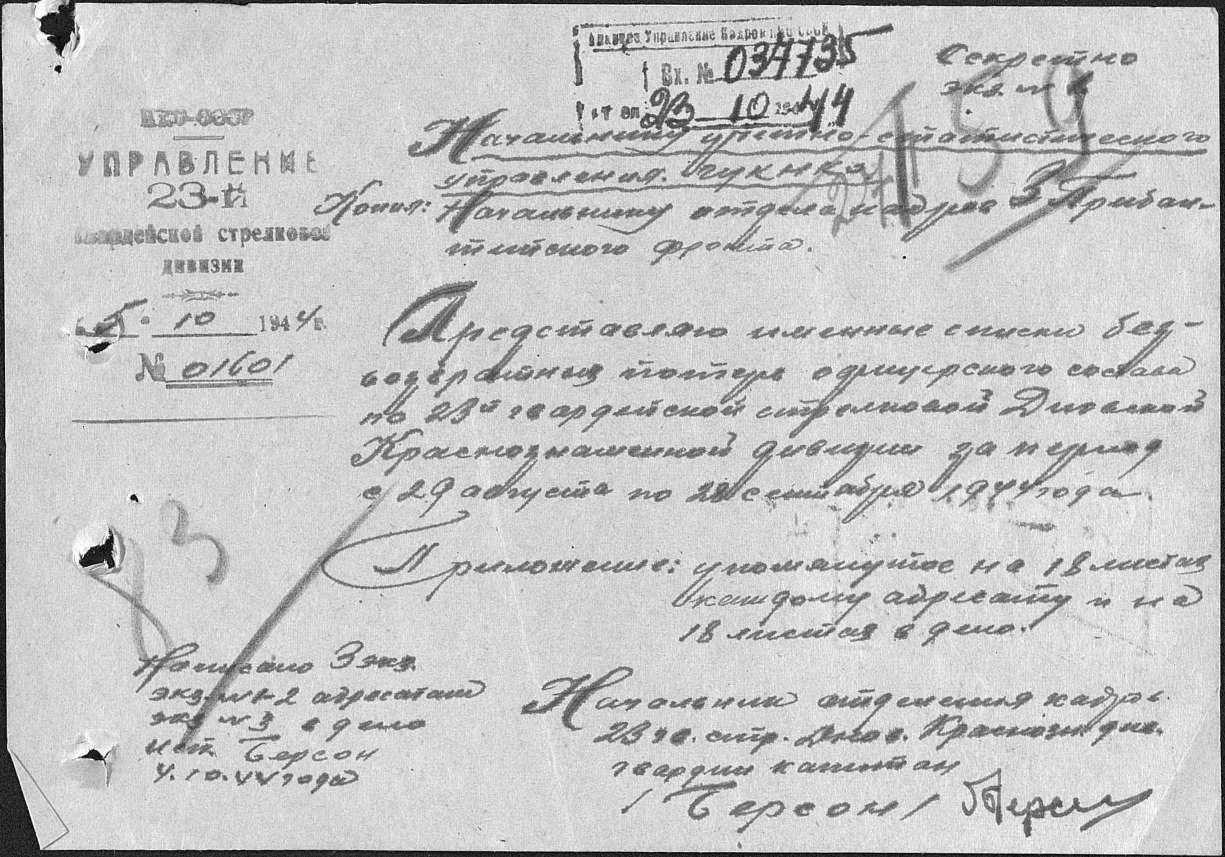 Управление Кадров НКО СССР
Вх. № 037735
от 23 10 1944
Секретно
экз. № 1
159
НКО-СССР
УПРАВЛЕНИЕ
23-й
Гвардейской стрелковой
дивизии
5 · 10 1944 г.
№ 01601
Начальнику учетно-статистического
управления ГУК НКО
Копия: Начальнику отдела кадров 3 Прибал-
тийского фронта.
Представляю именные списки без-
возвратных потерь офицерского состава
по 23й гвардейской стрелковой Дновской
Краснознаменной дивизии за период
с 29 августа по 28 сентября 1944 года
Приложение: упомянутое на 18 листах
каждому адресату и на
18 листах в дело.
83
Написано 3 экз.
экз. №1-2 адресатам
экз №3 в дело
исп. Берсон
4.10.44 года
Начальник отделения кадров
23 гв. стр. Днов. Краснозн. див.
гвардии капитан
/Берсон/